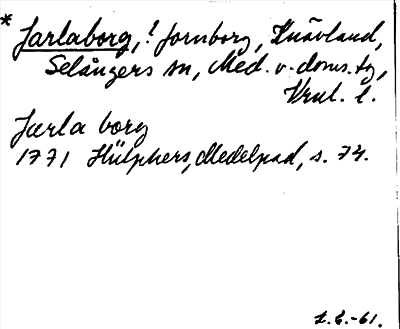 * Jarlaborg, ! fornborg, Knävland,
Selångers sn, Med. v. doms. tg,
Vrnl. l.
Jarla borg
1771 Hülphers, Medelpad, s. 74.
L.E.-61.